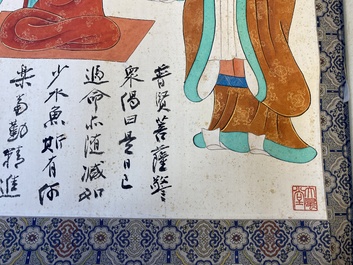 普賢菩薩警
眾偈曰是日已
過命亦隨減如
少水魚斯有何
樂當勤精進
大風堂